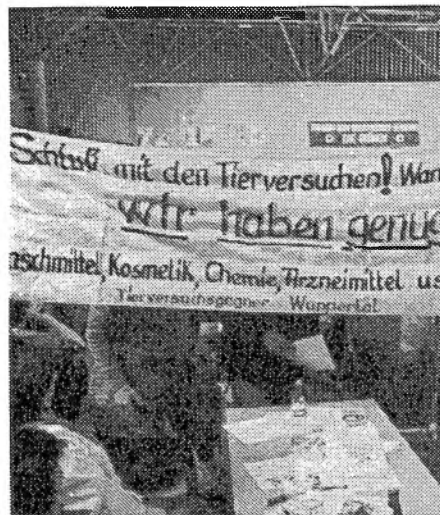 Schluß mit den Tierversuchen! War
Wir haben genug
aschmittel, Kosmetik, Chemie, Arzneimittel us
Tierversuchsgegner Wuppertal